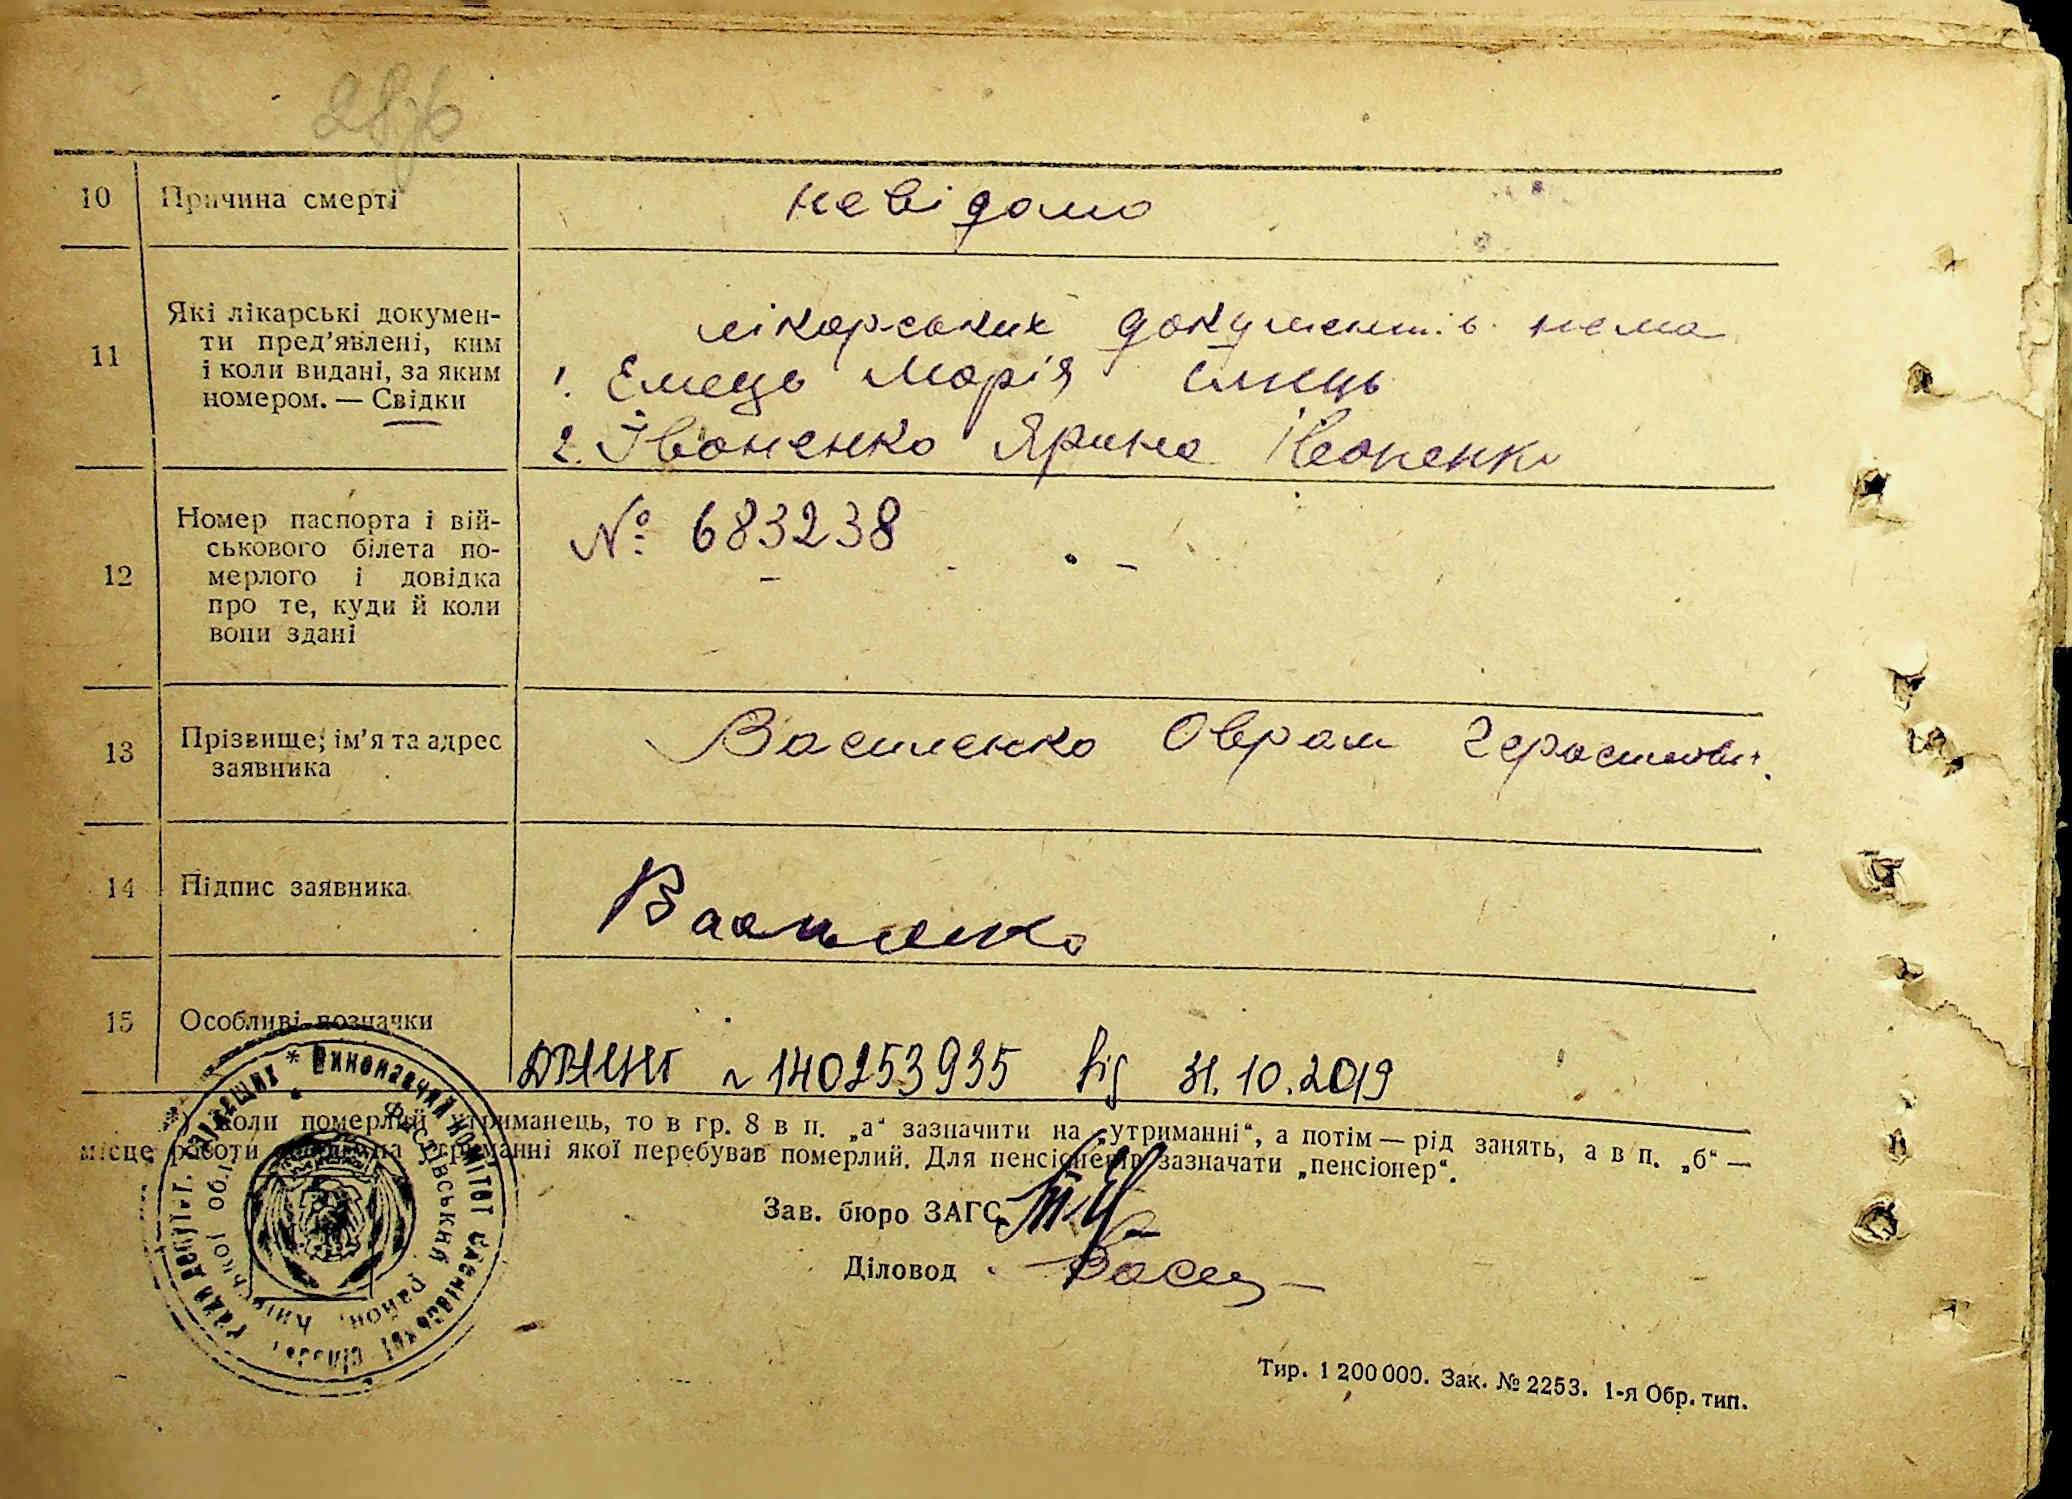 10 Причина смерті невідомо
11 Які лікарські докумен-
ти пред'явлені, ким
і коли видані, за яким
номером. — Свідки
лікарських документів нема
1. Емець Марія Емець
2. Івоненко Ярина Івоненко
12 Номер паспорта і вій-
ськового білета по-
мерлого і довідка
про те, куди й коли
вони здані
№ 683238
13 Прізвище, ім'я та адрес
заявника
Василенко Оврам Герасимович
14 Підпис заявника
Василенко
15 Особливі позначки
№ 140253935 від 31.10.2019
*) Коли померлий утриманець, то в гр. 8 в п. „а“ зазначити на „утриманні“, а потім — рід занять, а в п. „б“ —
місце роботи утриманні якої перебував померлий. Для пенсіонерів зазначати „пенсіонер“.
Зав. бюро ЗАГС
Діловод
* Виконавчий комітет сільської ради депут. трудящих
Фастівський район, Київської обл.
Тир. 1 200 000. Зак. № 2253. 1-я Обр. тип.